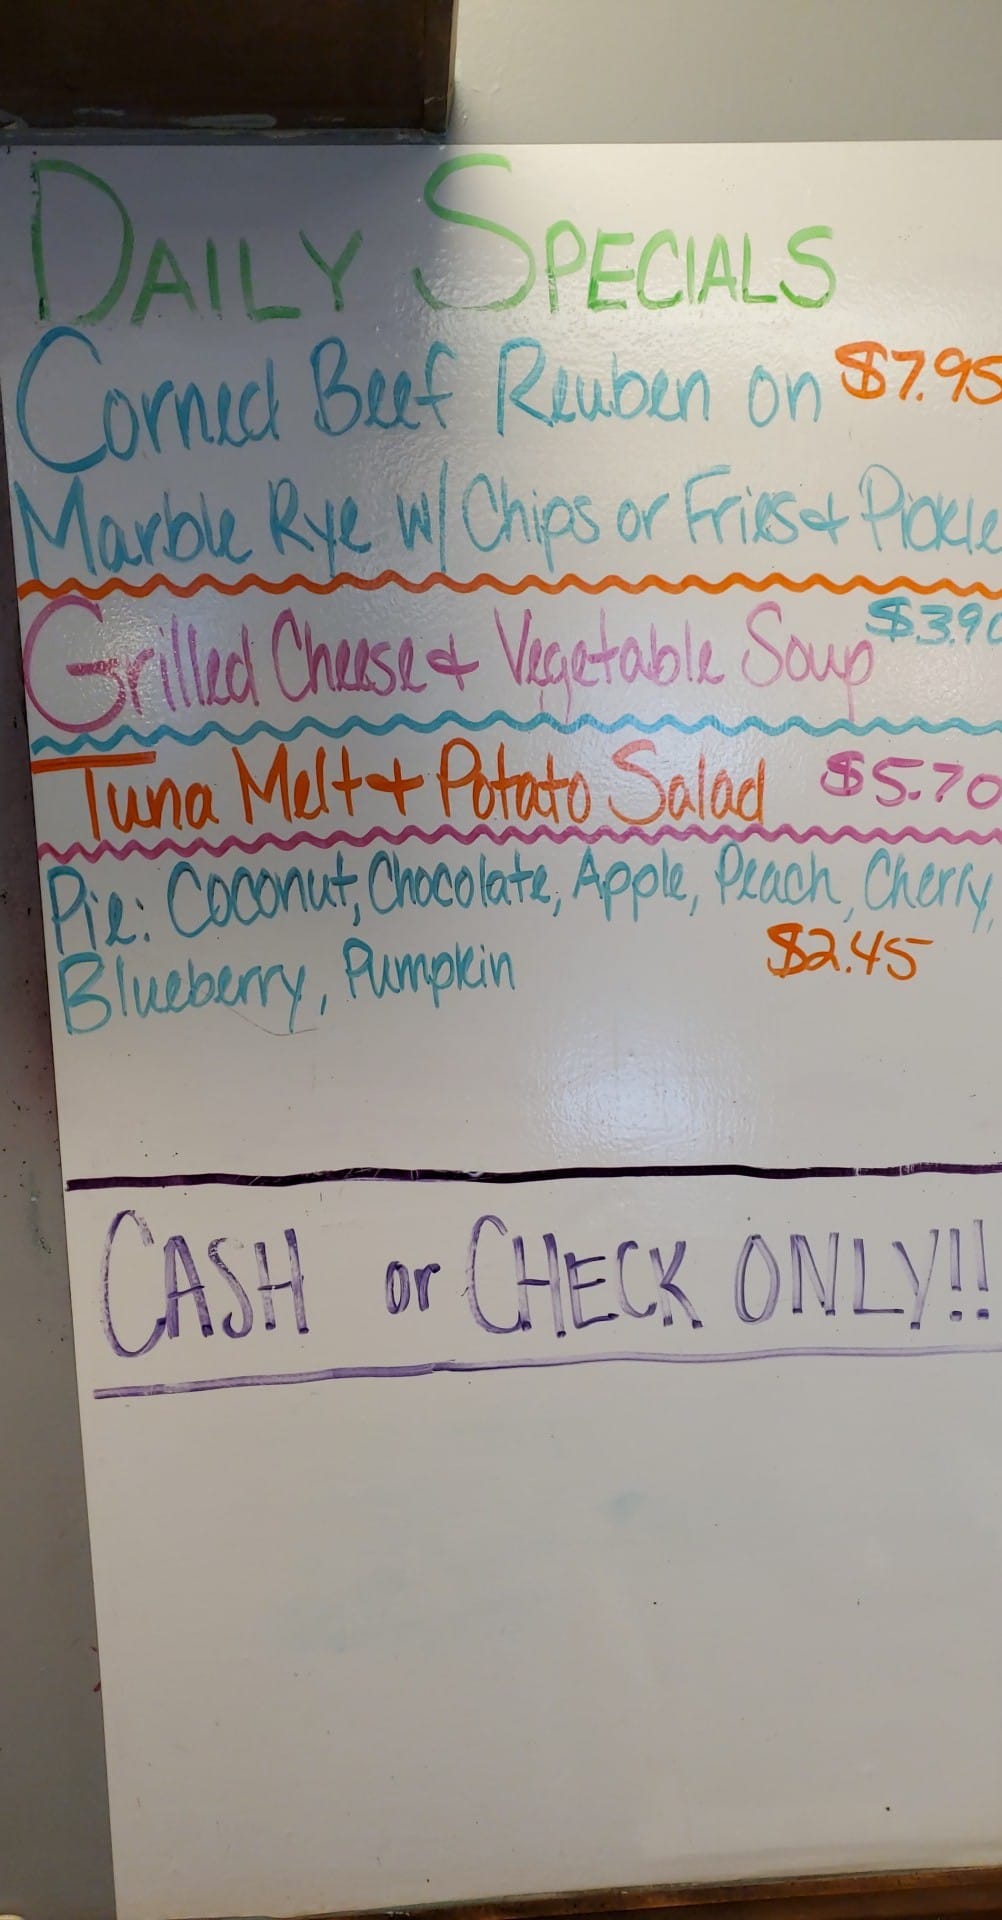 DAILY SPECIALS
Corned Beef Reuben on $7.95
Marble Rye w/ Chips or Fries & Pickle
Grilled Cheese & Vegetable Soup $3.90
Tuna Melt & Potato Salad $5.70
Pie: Coconut, Chocolate, Apple, Peach, Cherry,
Blueberry, Pumpkin $2.45
CASH or CHECK ONLY!!